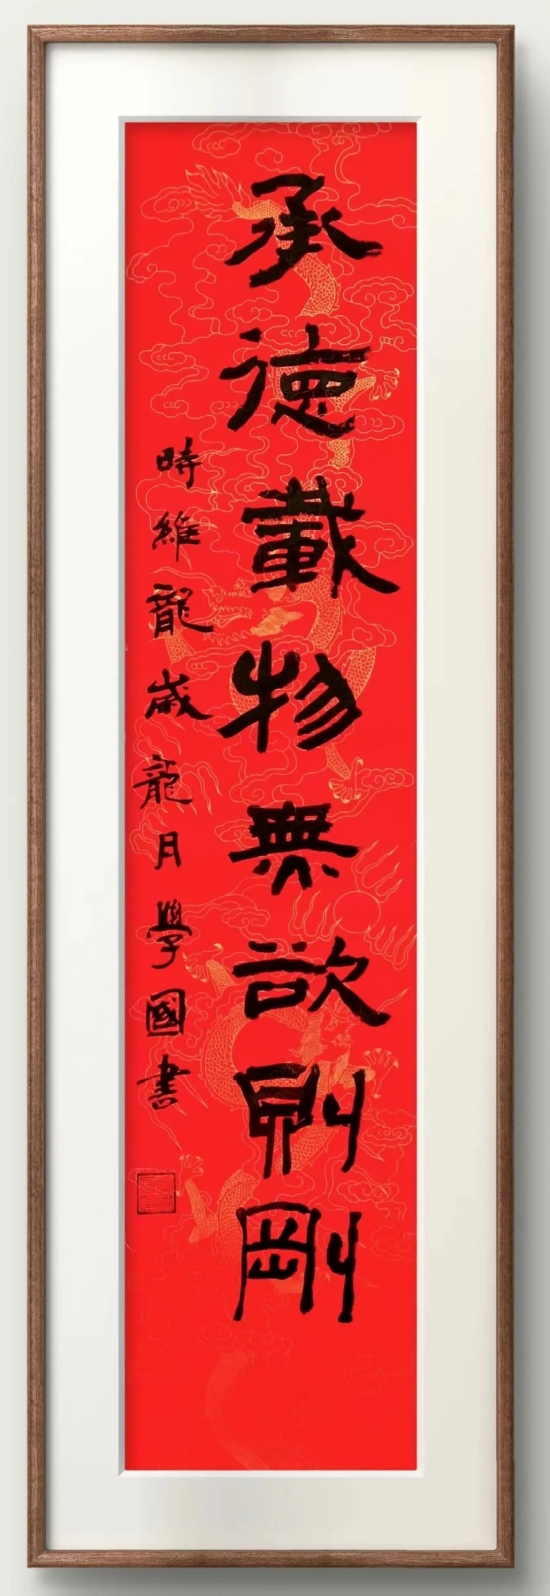 承德載物無欲則剛
時維龍歲龍月學國書